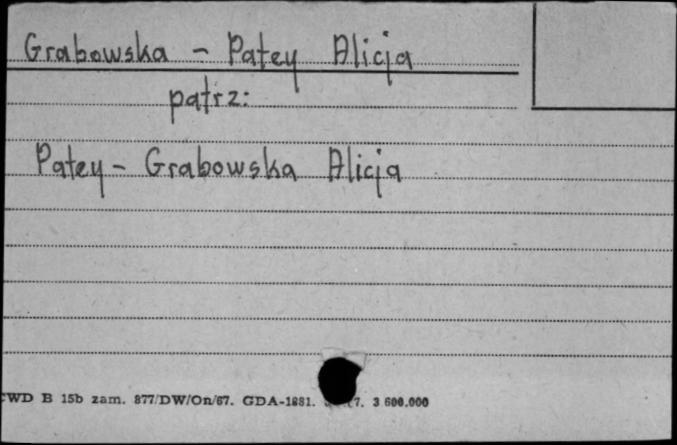 Grabowska - Patey Alicja
patrz:
Patey - Grabowska Alicja
WD B 15b zam. 877/DW/On/67. GDA-1881. 7. 3 600.000